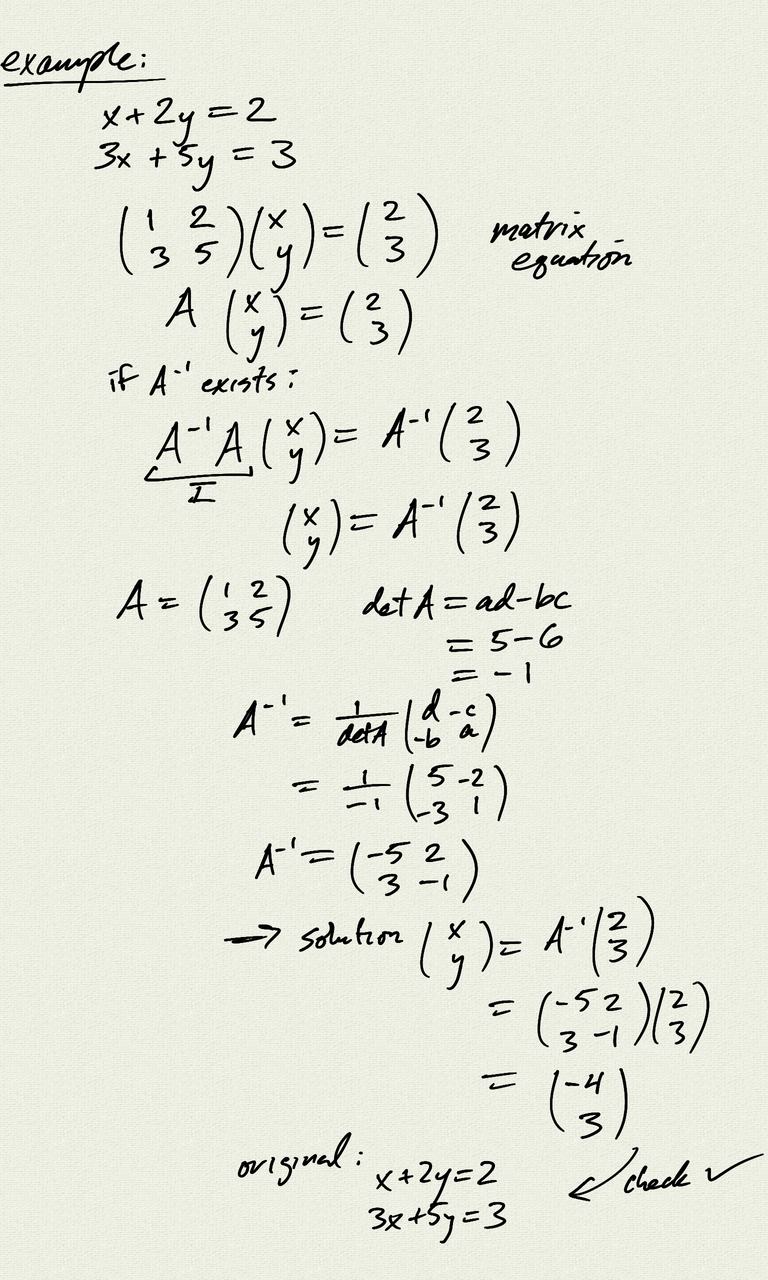 example:
x+2y=2
3x+5y=3
(1 2
3 5)(x
y)=(2
3) matrix equation
A (x
y)=(2
3)
if A⁻¹ exists:
A⁻¹A(x
y)= A⁻¹(2
3)
I
(x
y)= A⁻¹(2
3)
A=(1 2
3 5) det A = ad-bc
= 5-6
= -1
A⁻¹= 1/detA (d -c
-b a)
= 1/-1 (5 -2
-3 1)
A⁻¹=(-5 2
3 -1)
→ solution (x
y)= A⁻¹(2
3)
= (-5 2
3 -1)(2
3)
= (-4
3)
original: x+2y=2
3x+5y=3
← check ✓